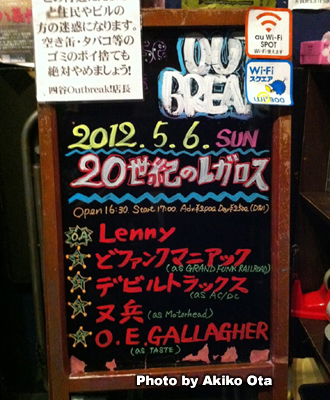 ど住民やビルの
方の迷惑になります。
空き缶・タバコ等の
ゴミのポイ捨ても
絶対やめましょう!
四谷Outbreak!店長
au Wi-Fi
SPOT
Wi-Fi
スクエア
OUT
BREAK
2012.5.6. SUN
20世紀のレガロス
Open 16:30 Start 17:00
O.A Lenny
どファンクマニアック
(as GRAND FUNK RAILROAD)
デビルトラックス
(as AC/DC)
又兵 (as Motorhead)
O.E.GALLAGHER
(as TASTE)
Photo by Akiko Ota